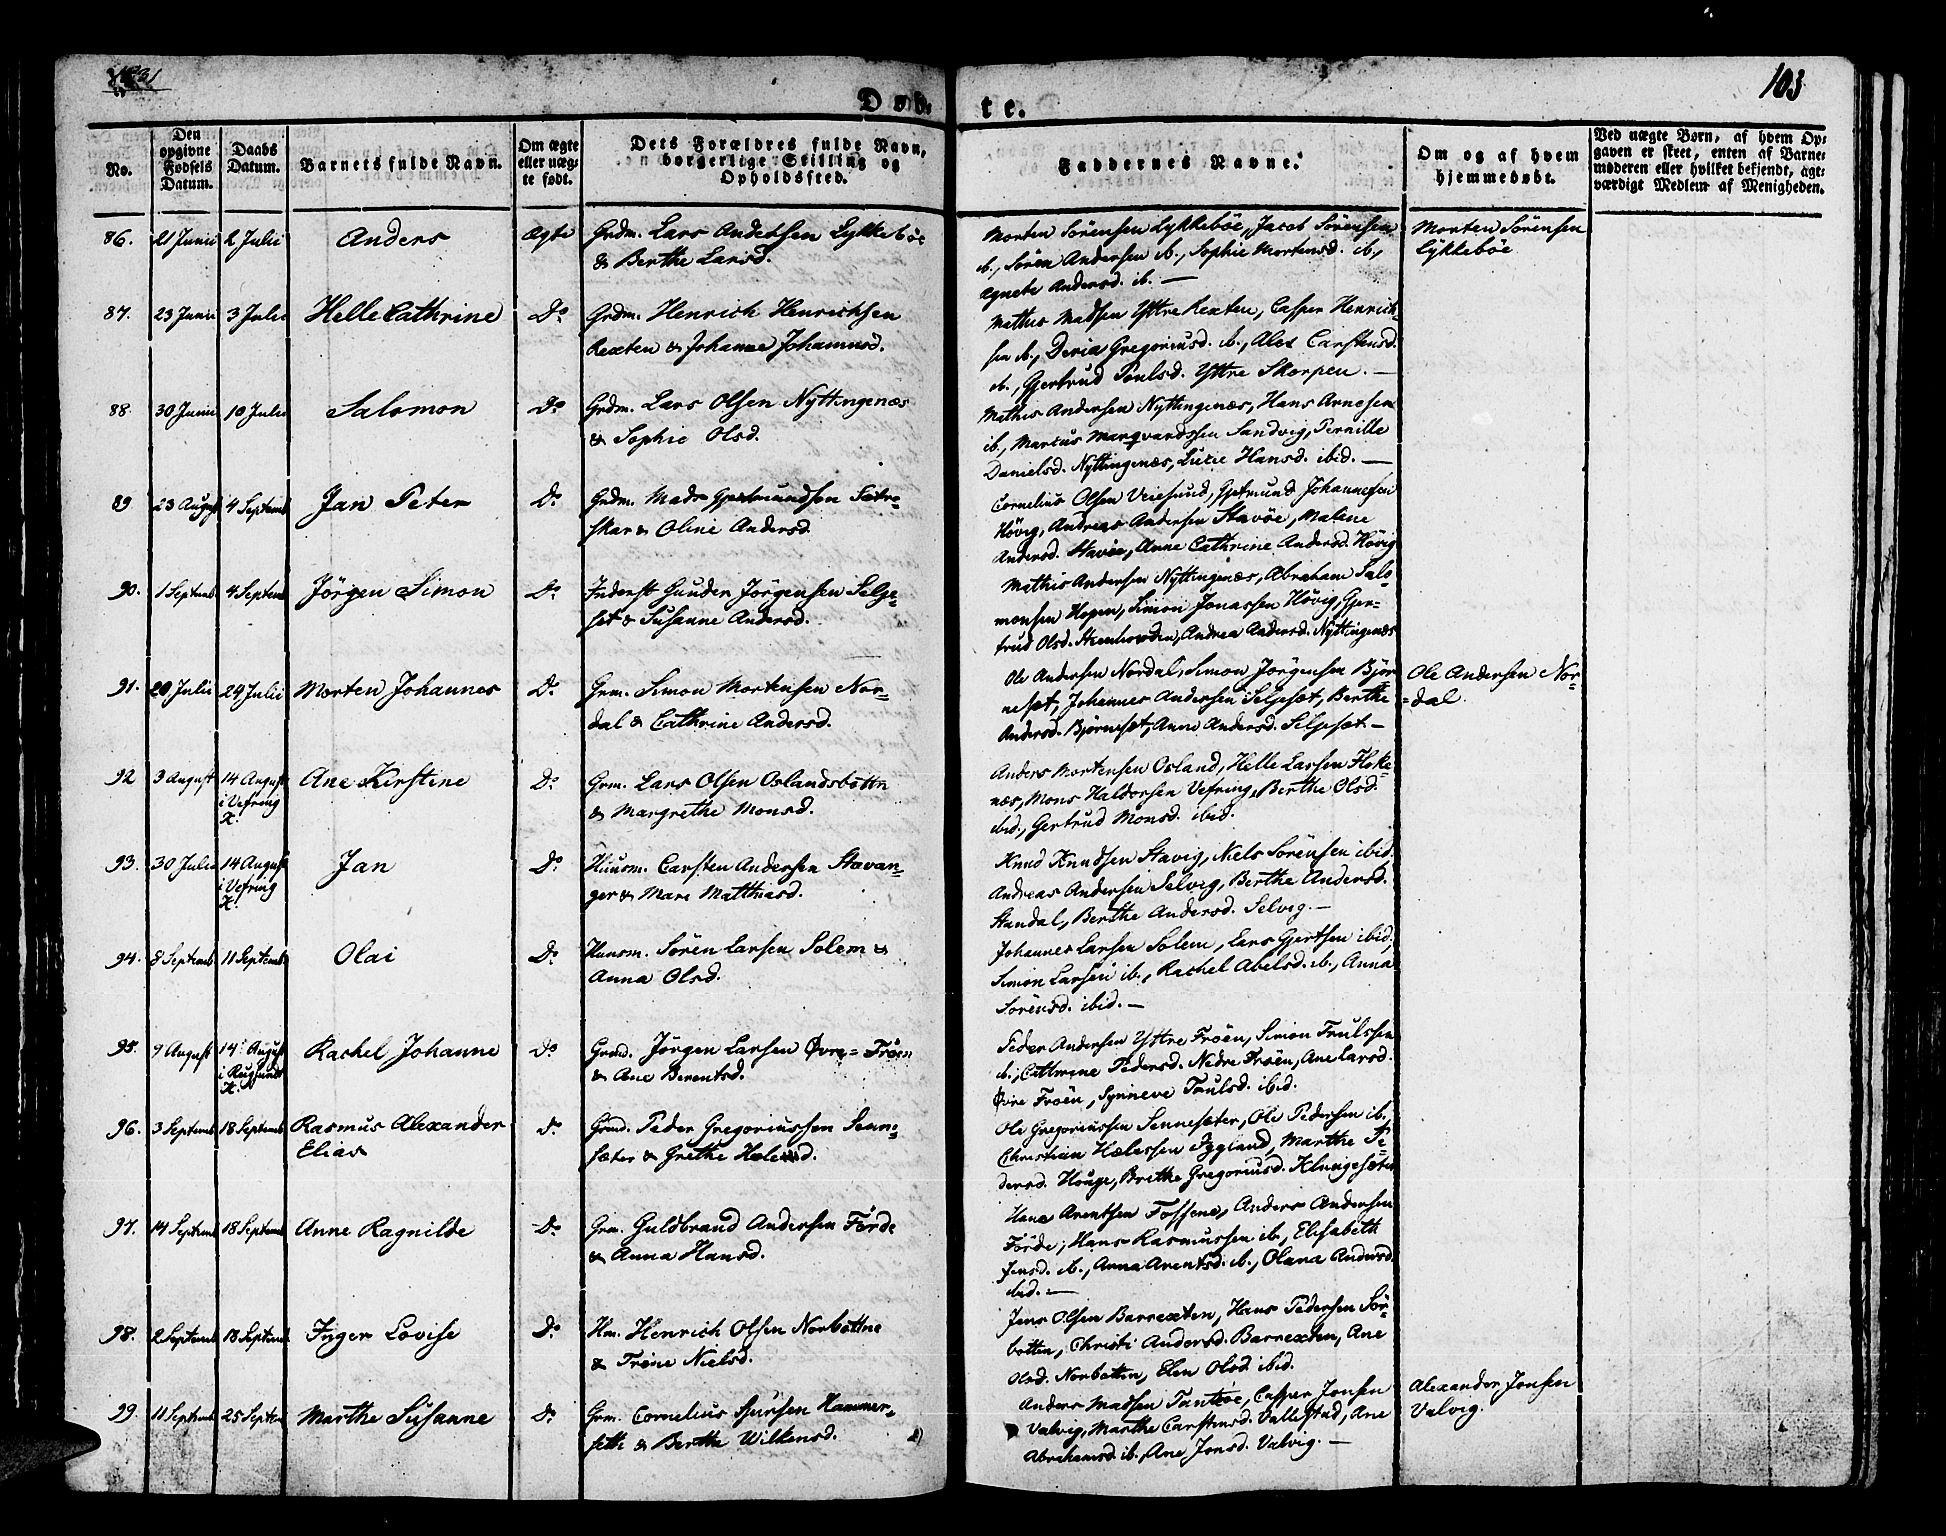 1831
103
Døbte.
No.
Den opgivne Fødsels Datum.
Daabs Datum.
Barnets fulde Navn.
Om ægte eller uægte født.
Dets Forældres fulde Navn, borgerlige Stilling og Opholdssted.
Faddernes Navne.
Om og af hvem hjemmedøbt.
Ved uægte Børn, af hvem Opgaven er skeet, enten af Barnemoderen eller hvilket bekjendt, agtværdigt Medlem af Menigheden.
86. 21 Junii 2 Julii Anders ægte Grdm. Lars Andersen Lykkebøe
& Berthe Larsd.
Morten Sörensen Lykkebøe, Jacob Sörensen
ib., Sören Andersen ib., Sophie Mortensd. ib.,
Agnete Andersd. ib. —
Morten Sörensen
Lykkebøe
87. 23 Junii 3 Julii Helle Cathrine Do Grdm. Henrich Henrichsen
Rexten & Johanne Johannisd.
Mathis Madsen Yttre Rexten, Casper Henrich-
sen ib., Deria Gregoriusd. ib., Ales Carstensd.
ib., Gjertrud Poulsd. Yttre Skorpen. —
88. 30 Junii 10 Julii Salomon Do Grdm. Lars Olsen Nyttingenæs
& Sophie Olsd.
Mathis Andersen Nyttingenæs, Hans Arnesen
ib., Marcus Marqvardssen Sandvig, Pernille
Danielsd. Nyttingenæs, Lucie Hansd. ibid. —
89 23 August 4 Septemb Jan Peter Do Grdm. Mads Gjertmundsen Sætre-
skar & Oline Andersd.
Cornelius Olsen Veiesund, Gjertmund Johannesen
Hövig, Andreas Andersen Stavöe, Malene
Andersd. Stavöe, Anne Cathrine Andersd. Hövig
90. 1 Septemb 4 Septemb Jörgen Simon Do Inderst Gunder Jörgensen Selje-
set & Susanne Andersd.
Mathis Andersen Nyttingenæs, Abraham Salo-
monsen Hegen, Simon Jonassen Hövig, Gjer-
trud Olsd. Andrea Andersd. Nyttingenæs
91. 20 Julii 24 Julii Morten Johannes Do Grm. Simon Mortensen Nor-
dal & Cathrine Andersd.
Ole Andersen Nordal, Simon Jörgensen Björ-
neset, Johannes Andersen Seljeset, Berthe
Andersd. Björneset, Anne Andersd. Seljeset —
Ole Andersen Nor-
dal.
92 3 August 14 August i Vefring K. Ane Kirstine Do Grm. Lars Olsen Oslandsbottn
& Margrethe Monsd.
Anders Mortensen Osland, Helle Larsen Floke-
næs, Mons Haldorsen Vefring, Berthe Olsd.
ibid., Gertrud Monsd. ibid.
93. 30 Julii 14 August i Vefring K. Jan Do Huusm. Carsten Andersen Stavan-
ger & Mari Matthiasd.
Knud Knudsen Stavig, Niels Sörensen ibid.
Andreas Andersen Selvig, Berthe Andersd.
Standal, Berthe Andersd. Selvig. —
94. 8 Septemb 11 Septemb Olai Do Huusm. Sören Larsen Solem &
Anna Olsd.
Johannes Larsen Solem, Lars Gjertsen ibid,
Simon Larsen ib., Rachel Abelsd. ib., Anna
Sörensd. ibid. —
95. 9 August 14 August i Rugsund K. Rachel Johanne Do Grmd. Jörgen Larsen Øvre= Fröen
& Ane Berentsd.
Peder Andersen Yttre Fröen, Simon Poulssen
ib., Cathrine Pedersd. Nedre Fröen, Ane Larsd.
Øvre Fröen, Synneve Poulsd. ibid.
96. 3 Septemb 18 Septemb Rasmus Alexander
Elias Do Grmd. Peder Gregoriussen Senne-
sæter & Grethe
Ole Gregoriussen Sennesæter, Ole Pedersen ib.,
Christian Hælessen Fygland, Marthe Pe-
dersd. Houge, Brithe Gregoriusd. Klungesæter
97. 14 Septemb 18 Septemb Anne Ragnilde Do Grm. Guldbrand Andersen Förde
& Anna Hansd.
Hans Arentsen Fossene, Anders Andersen
Förde, Hans Rasmussen ib., Elisabeth
Jensd. ib., Anna Arentsd. ib., Olana Andersd.
ibid. —
98. 2 Septemb 18 Septemb Inger Lovise Do Hm. Henrich Olsen Norbottne
& Trine Nielsd.
Jens Olsen Barrexten, Hans Pedersen Sör-
botten, Christi Andersd. Barrexten, Ane
Olsd. Norbotten, Elen Olsd. ibid.
99. 11 Septemb 25 Septem Marthe Susanne Do Grm. Cornelius Sjursen Hammer-
seth & Berthe Wilkensd.
Anders Madsen Tantöe, Casper Jonsen
Valvig, Marthe Carstensd. Vallestad, Ane
Abrahamsd. ib., Ane Jonsd. Valvig. —
Alexander Jonsen
Valvig.